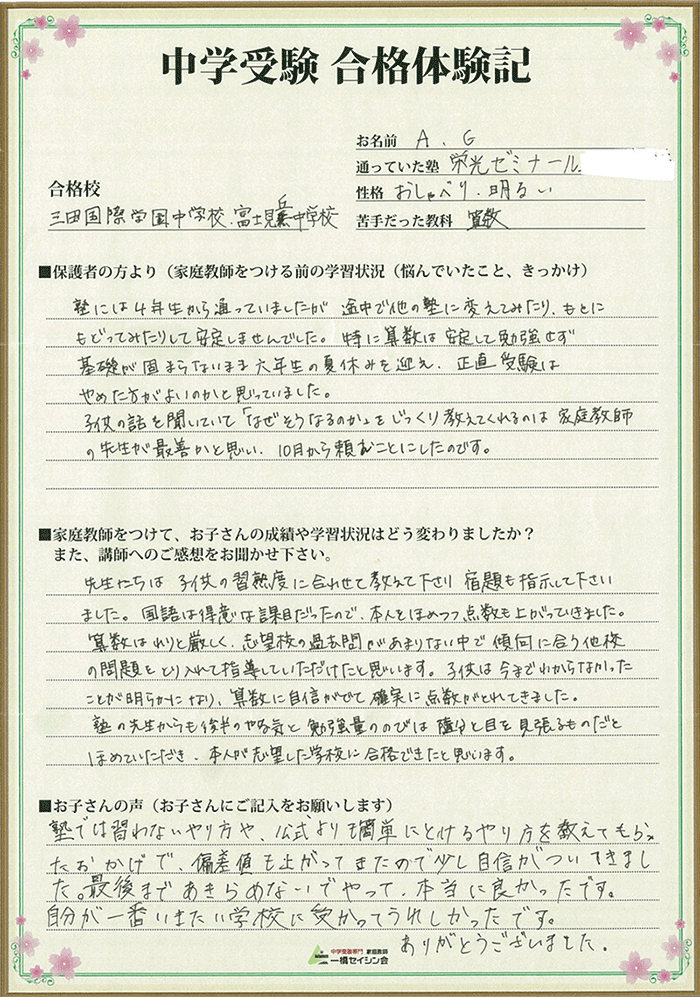 中学受験 合格体験記
お名前 A.G
通っていた塾 栄光ゼミナール
合格校
性格 おしゃべり.明るい
三田国際学園中学校.富士見丘中学校
苦手だった教科 算数
■保護者の方より（家庭教師をつける前の学習状況（悩んでいたこと、きっかけ）
塾には4年生から通っていましたが 途中で他の塾に変えてみたり、もとに
もどってみたりして安定しませんでした。特に算数は安定して勉強せず
基礎が固まらないまま六年生の夏休みを迎え、正直受験は
やめた方がよいのかと思っていました。
子供の話を聞いていて「なぜそうなるのか」をじっくり教えてくれるのは家庭教師
の先生が最善かと思い、10月から頼むことにしたのです。
■家庭教師をつけて、お子さんの成績や学習状況はどう変わりましたか？
また、講師へのご感想をお聞かせ下さい。
先生たちは子供の習熟度に合わせて教えて下さり 宿題も指示して下さい
ました。国語は得意な課目だったので、本人をほめつつ点数も上がっていきました。
算数はわりと厳しく、志望校の過去問があまりない中で傾向に合う他校
の問題をとり入れて指導していただけたと思います。子供は今までわからなかった
ことが明らかになり、算数に自信がでて確実に点数がとれてきました。
塾の先生からも後半のやる気と勉強量ののびは随分と目を見張るものだと
ほめていただき、本人が志望した学校に合格できたと思います。
■お子さんの声（お子さんにご記入をお願いします）
塾では習わないやり方や、公式よりも簡単にとけるやり方を教えてもらっ
たおかげで、偏差値も上がってきたので少し自信がついてきまし
た。最後まであきらめないでやって、本当に良かったです。
自分が一番いきたい学校に受かってうれしかったです。
ありがとうございました。
中学受験専門 家庭教師
一橋セイシン会